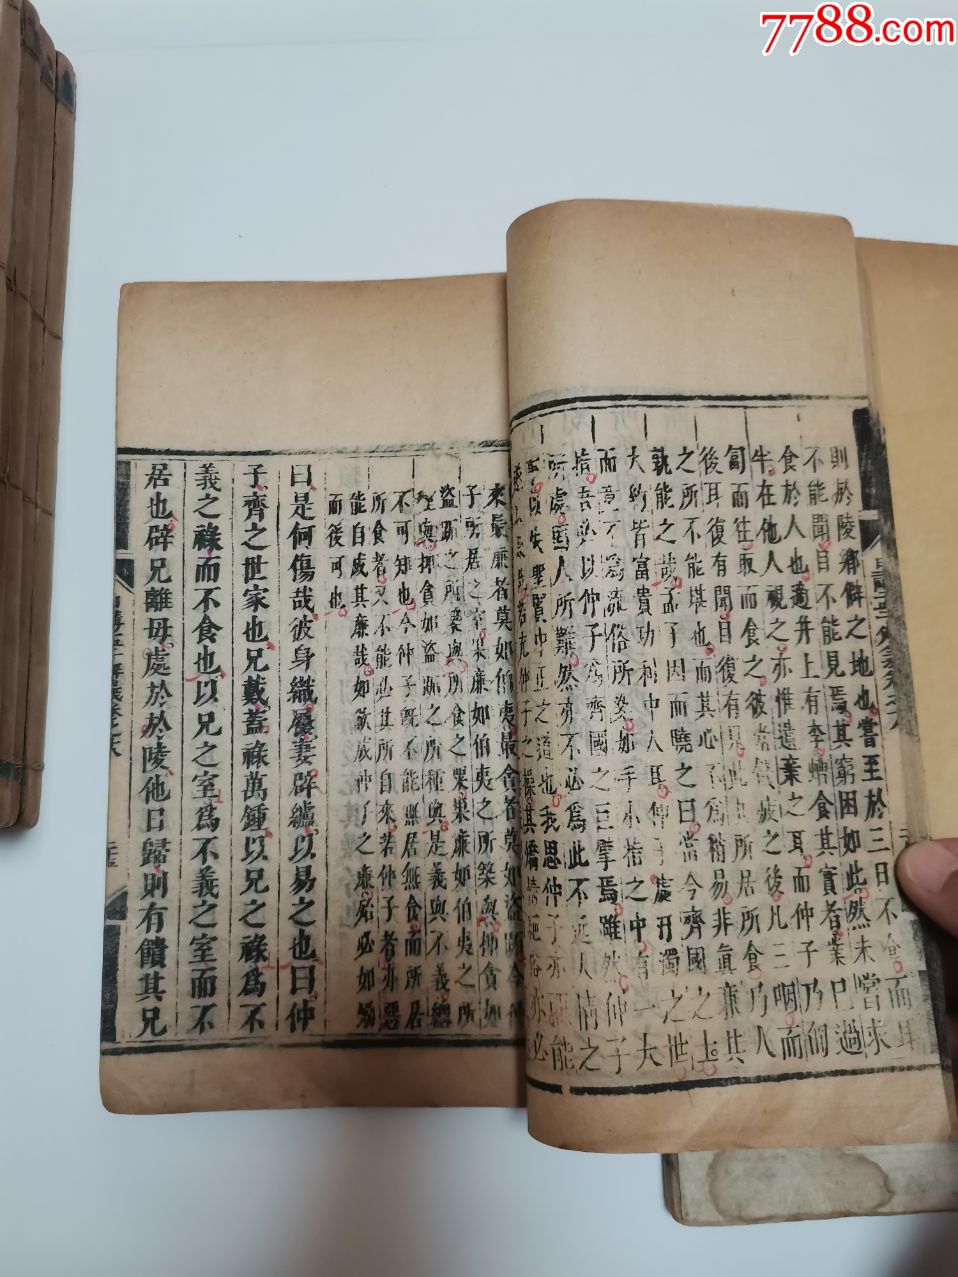 7788.com
則於陵鄉僻之地也嘗至於三日不食而耳
不能聞目不能見焉其窮困如此然未嘗求
食於人也適井上有李螬食其實者業已過
牛在他人視之亦惟遺棄之耳而仲子乃匍
匐而往取而食之彼當飢疲之後凡三咽而
後耳復有聞目復有見此也所居所食乃人
之所不能堪也而其心為稍易非真廉其
孰能之哉孟子因而曉之曰當今齊國之士
大約皆富貴功利中人耳仲子處丑濁之世
而意不為流俗所變如手小指之中有一大
指吾必以仲子為齊國之巨擘焉雖然仲子
所處固人所難然亦不必為此不近人情之
來最廉者莫如伯夷最貪者莫如盜跖今仲
子所居之室果廉如伯夷之所築與抑貪如
盜跖之所築與所食之粟果廉如伯夷之所
種與抑貪如盜跖之所種與是義與不義總
不可知也今仲子既不能無居無食而所居
所食者又不能必其所自來若仲子者亦惡
能自成其廉哉如欲成仲子之廉必如螾
而後可也
曰是何傷哉彼身織屨妻辟纑以易之也曰仲
子齊之世家也兄戴蓋祿萬鍾以兄之祿為不
義之祿而不食也以兄之室為不義之室而不
居也辟兄離母處於於陵他日歸則有饋其兄